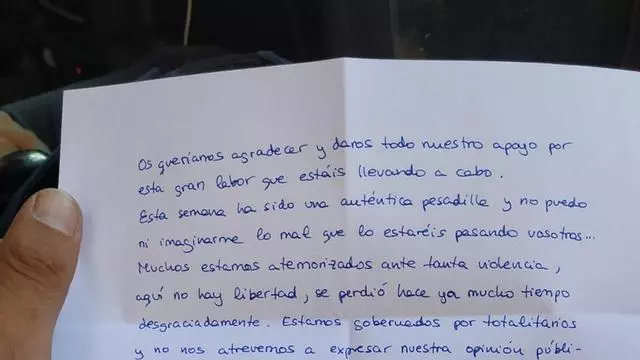 Os queríamos agradecer y daros todo nuestro apoyo por
esta gran labor que estáis llevando a cabo.
Esta semana ha sido una auténtica pesadilla y no puedo
ni imaginarme lo mal que lo estaréis pasando vosotros...
Muchos estamos atemorizados ante tanta violencia,
aquí no hay libertad, se perdió hace ya mucho tiempo
desgraciadamente. Estamos gobernados por totalitarios
y no nos atrevemos a expresar nuestra opinión públi-